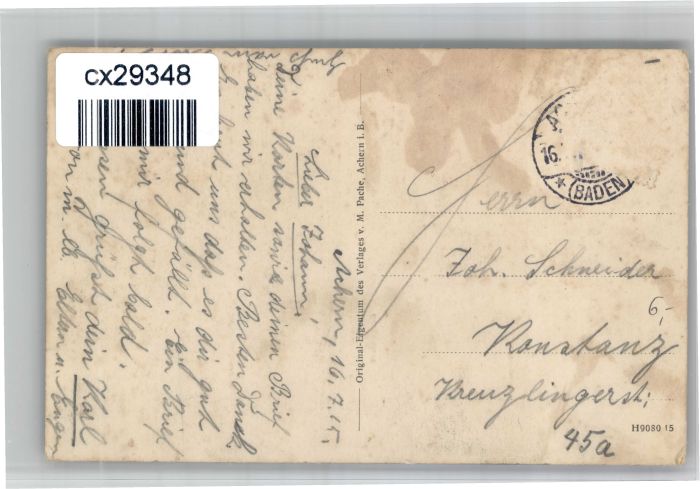 cx29348
Achern, 16. 7. 15.
Lieber Johann!
Deine Karten sowie deinen Brief
haben wir erhalten. Besten Dank
uns daß es dir gut
und gefällt. Ein Brief
mir folgt bald.
grüßt dein Karl
Original-Eigentum des Verlages v. M. Pache, Achern i. B.
16.
(BADEN)
Herrn
Joh. Schneider
6,-
Konstanz
Kreuzlingerst:
45a
H9080 15